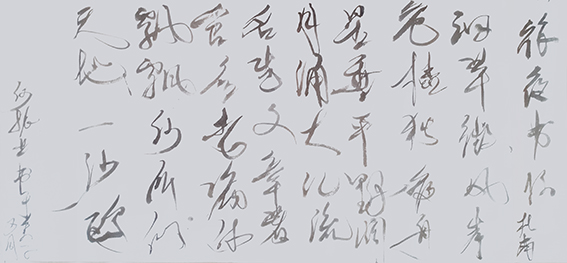 旅夜书怀 杜甫
细草微风岸
危樯独夜舟
星垂平野阔
月涌大江流
名岂文章著
官应老病休
飘飘何所似
天地一沙鸥